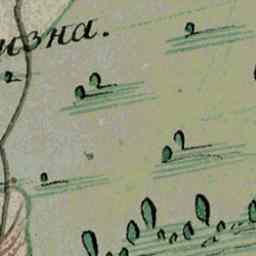 изна.